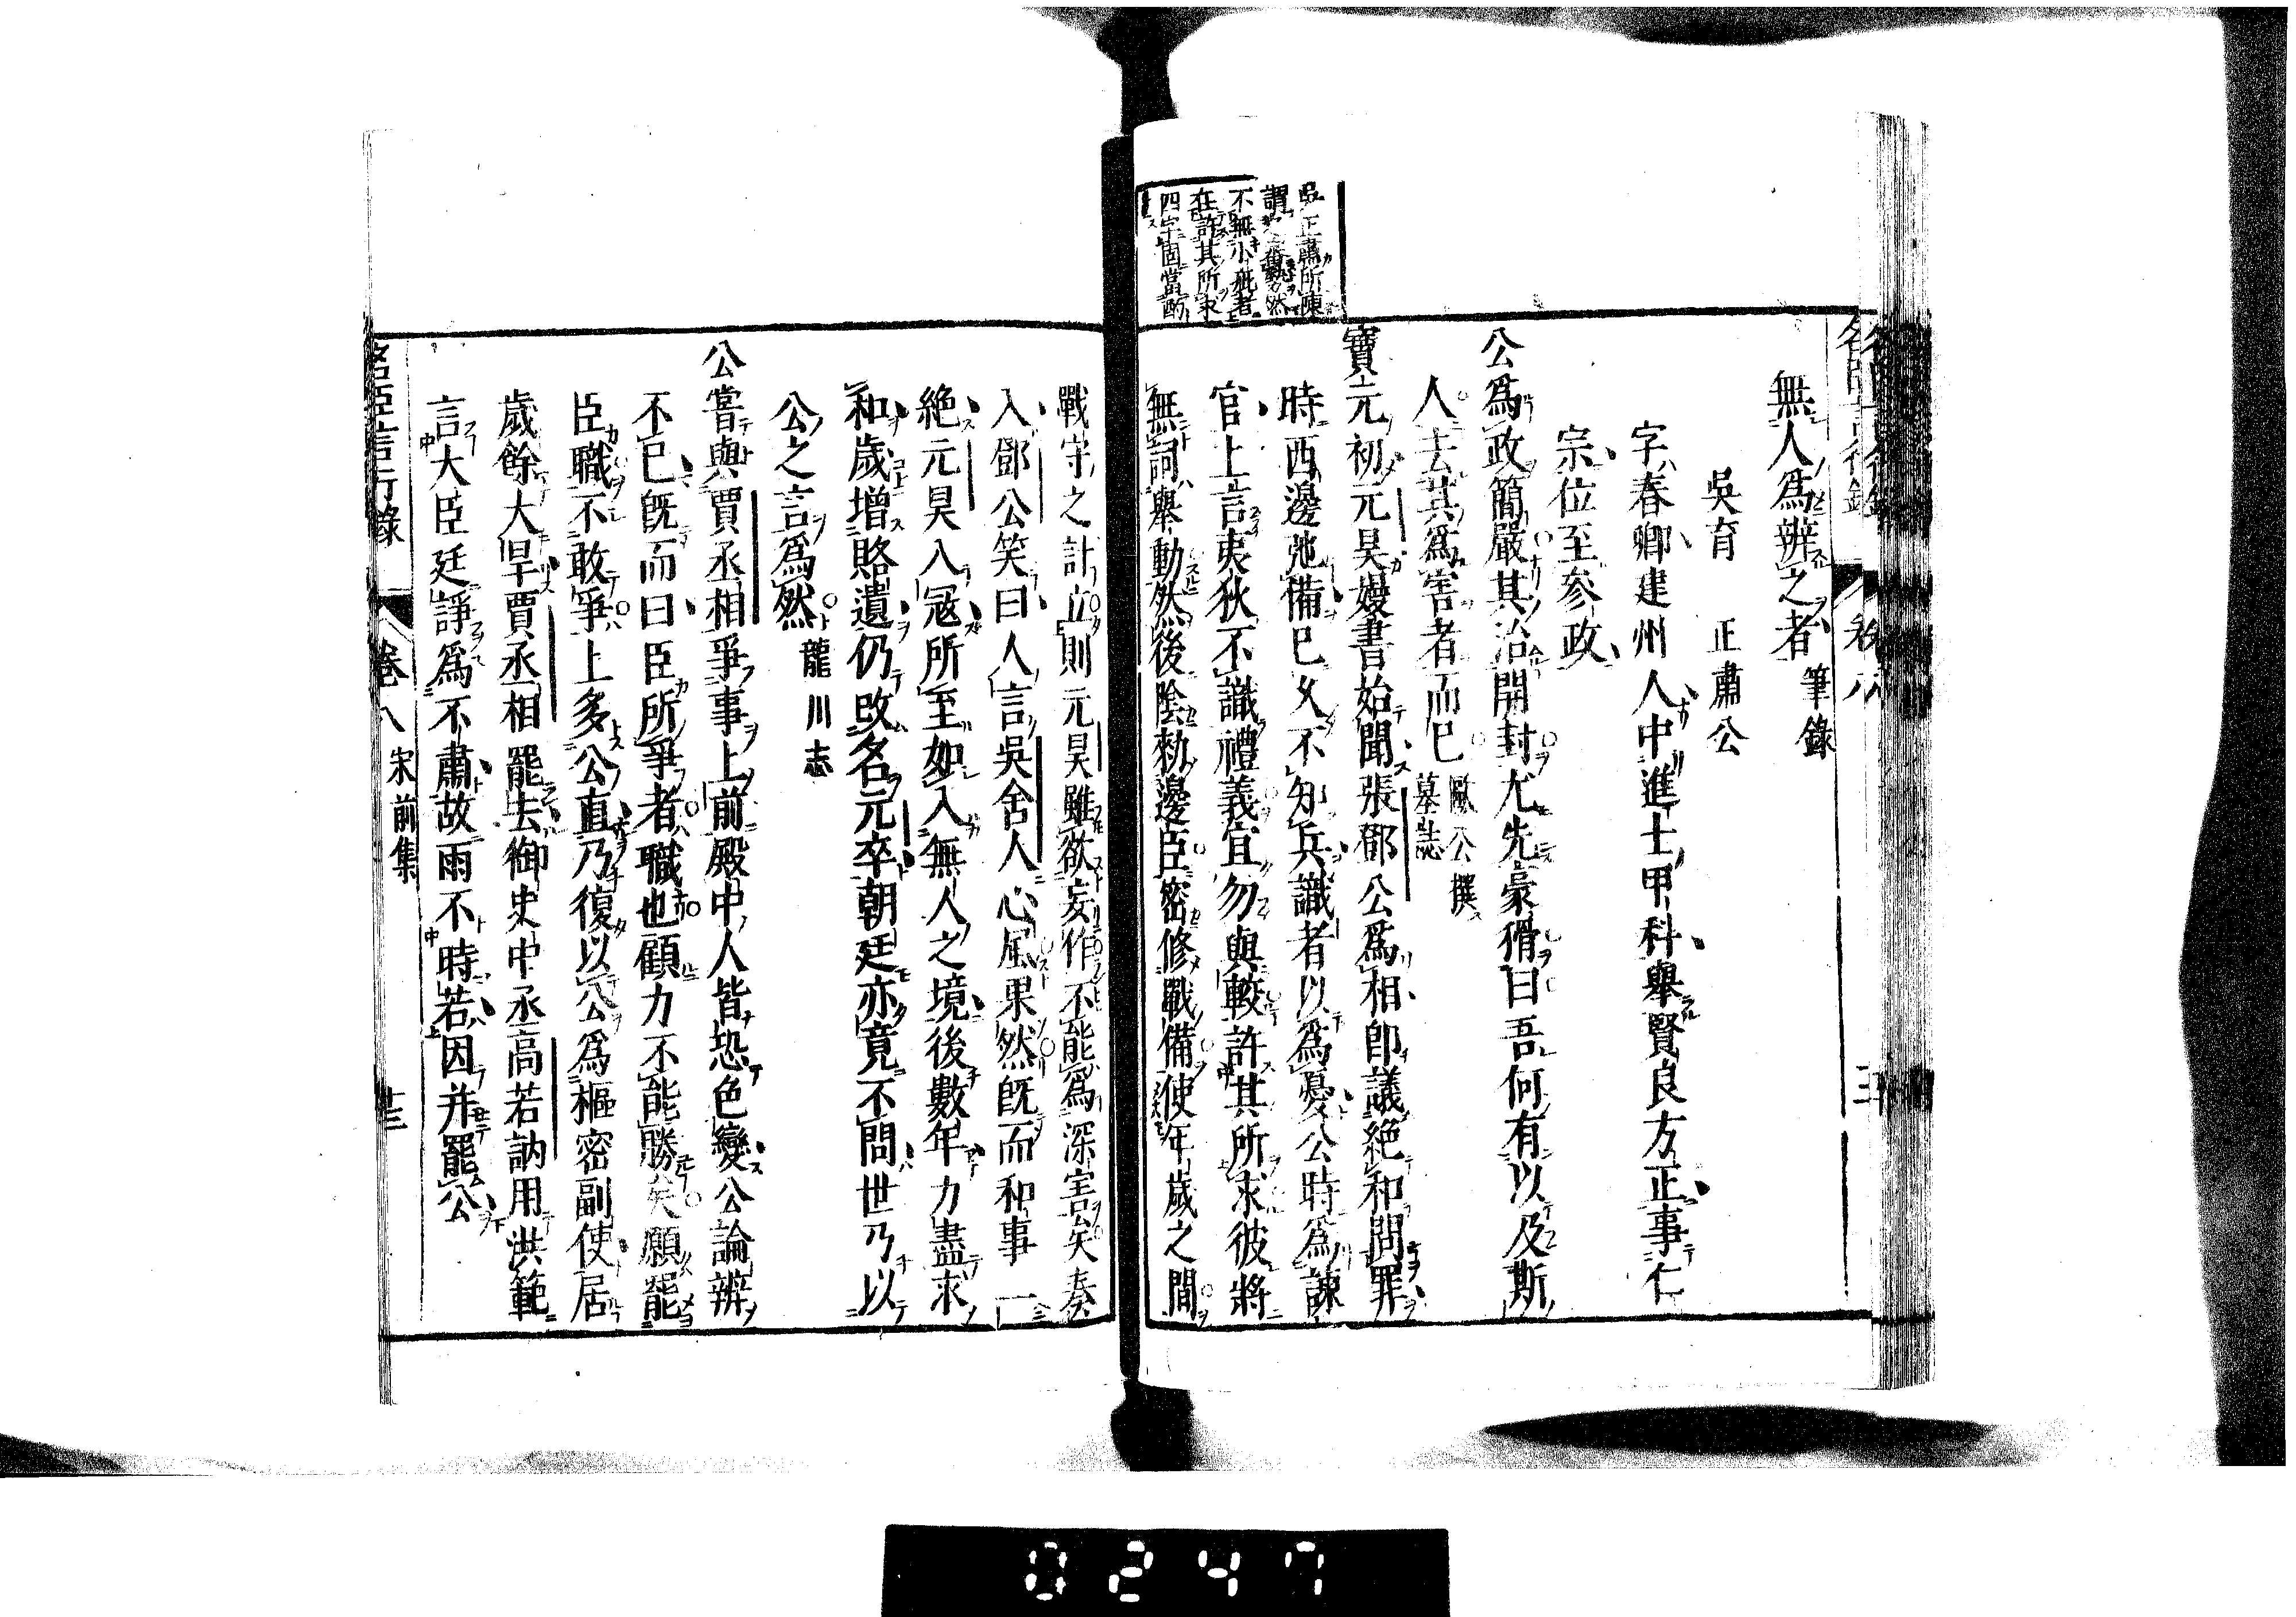 無人為辨之者筆錄
吳育　正肅公
字春卿建州人中進士甲科舉賢良方正事仁
宗位至參政
公爲政簡嚴其治開封尤先豪猾曰吾何有以及斯
人去其爲害者而已歐公撰墓誌
寶元初元昊嫚書始聞張鄧公爲相卽議絶和問罪
時西邊弛備已久不知兵識者以爲憂公時爲諫
官上言夷狄不識禮義宜勿與較許其所求彼將
無詞舉動然後陰勑邊臣密修戰備使年歲之間
吳正肅所陳
不無小疵者
在許其所求
四字固當酌
戰守之計立則元昊雖欲妄作不能爲深害矣奏
入鄧公笑曰人言吳舍人心風果然既而和事一
絶元昊入寇所至如入無人之境後數年力盡求
和歲增賂遺仍改名元卒朝廷亦竟不問世乃以
公之言爲然龍川志
公嘗與賈丞相爭事上前殿中人皆恐色變公論辨
不已既而曰臣所爭者職也顧力不能勝矣願罷
臣職不敢爭上多公直乃復以公爲樞密副使居
歲餘大旱賈丞相罷去御史中丞高若訥用洪範
言大臣廷諍爲不肅故雨不時若因并罷公
名臣言行錄　卷八　宋前集　廿三
0247